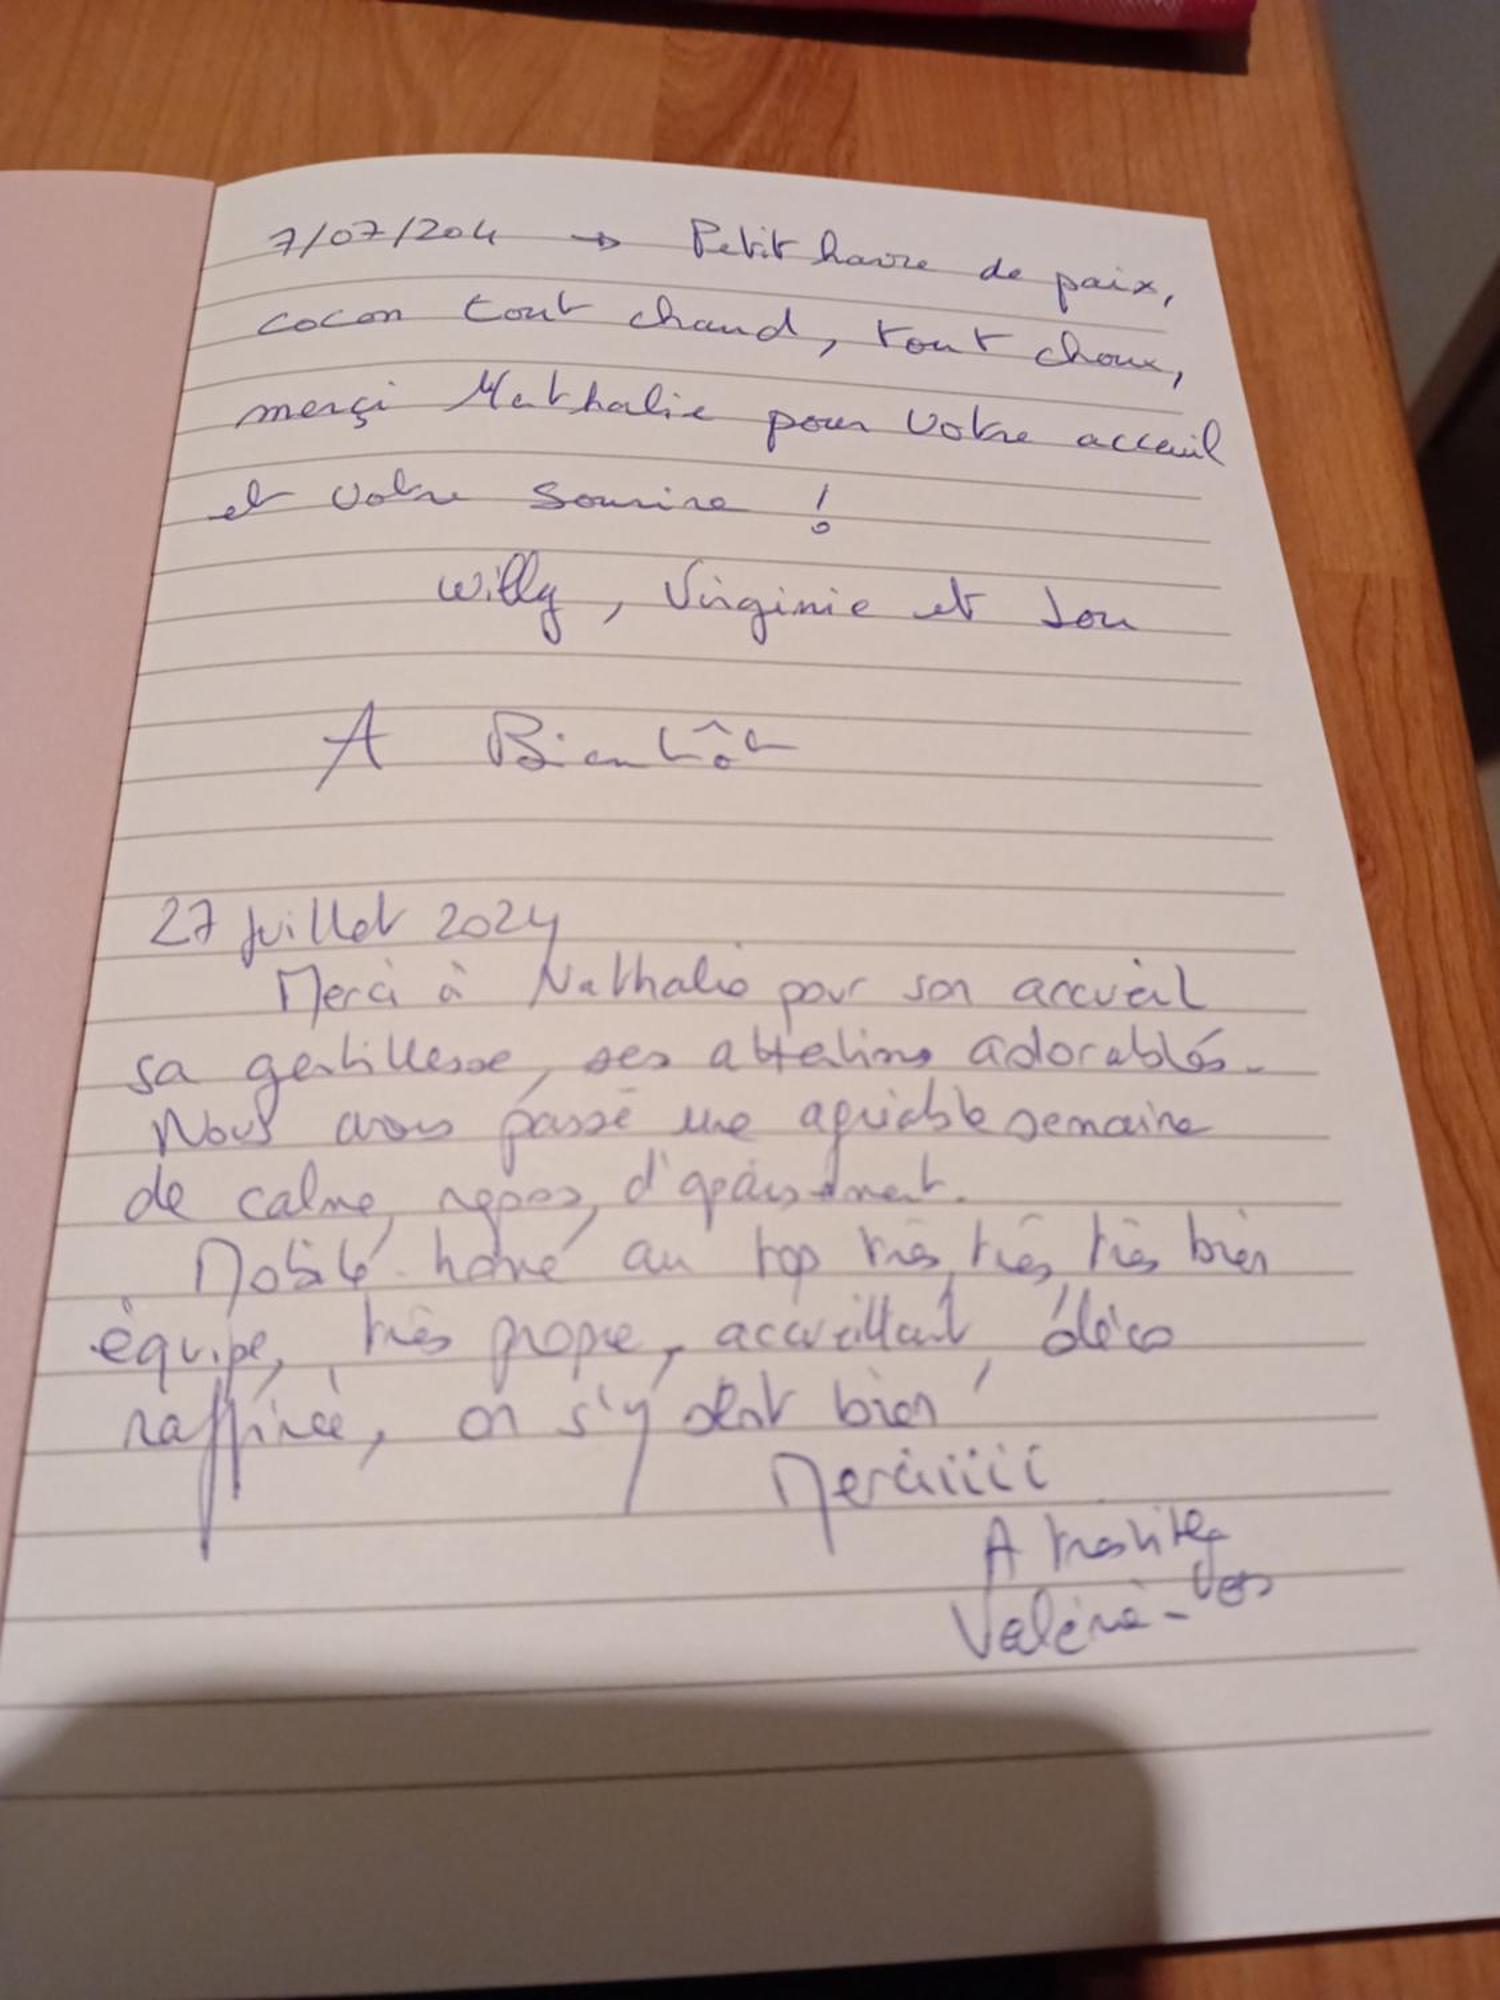 7/07/204 → Petit havre de paix,
cocon tout chaud, tout choux,
merçi Nathalie pour votre acceuil
et votre sourire !
Willy, Virginie et Lou
A Bientôt
27 Juillet 2024
Merci à Nathalie pour son accueil
sa gentillesse, ses attentions adorables.
Nous avons passé une agréable semaine
de calme, repos, d'apaisement.
Mobile home au top très, très, très bien
équipé, très propre, accueillant, déco
raffinée, on s'y sent bien
Merciiiii
A très vite
Valérie